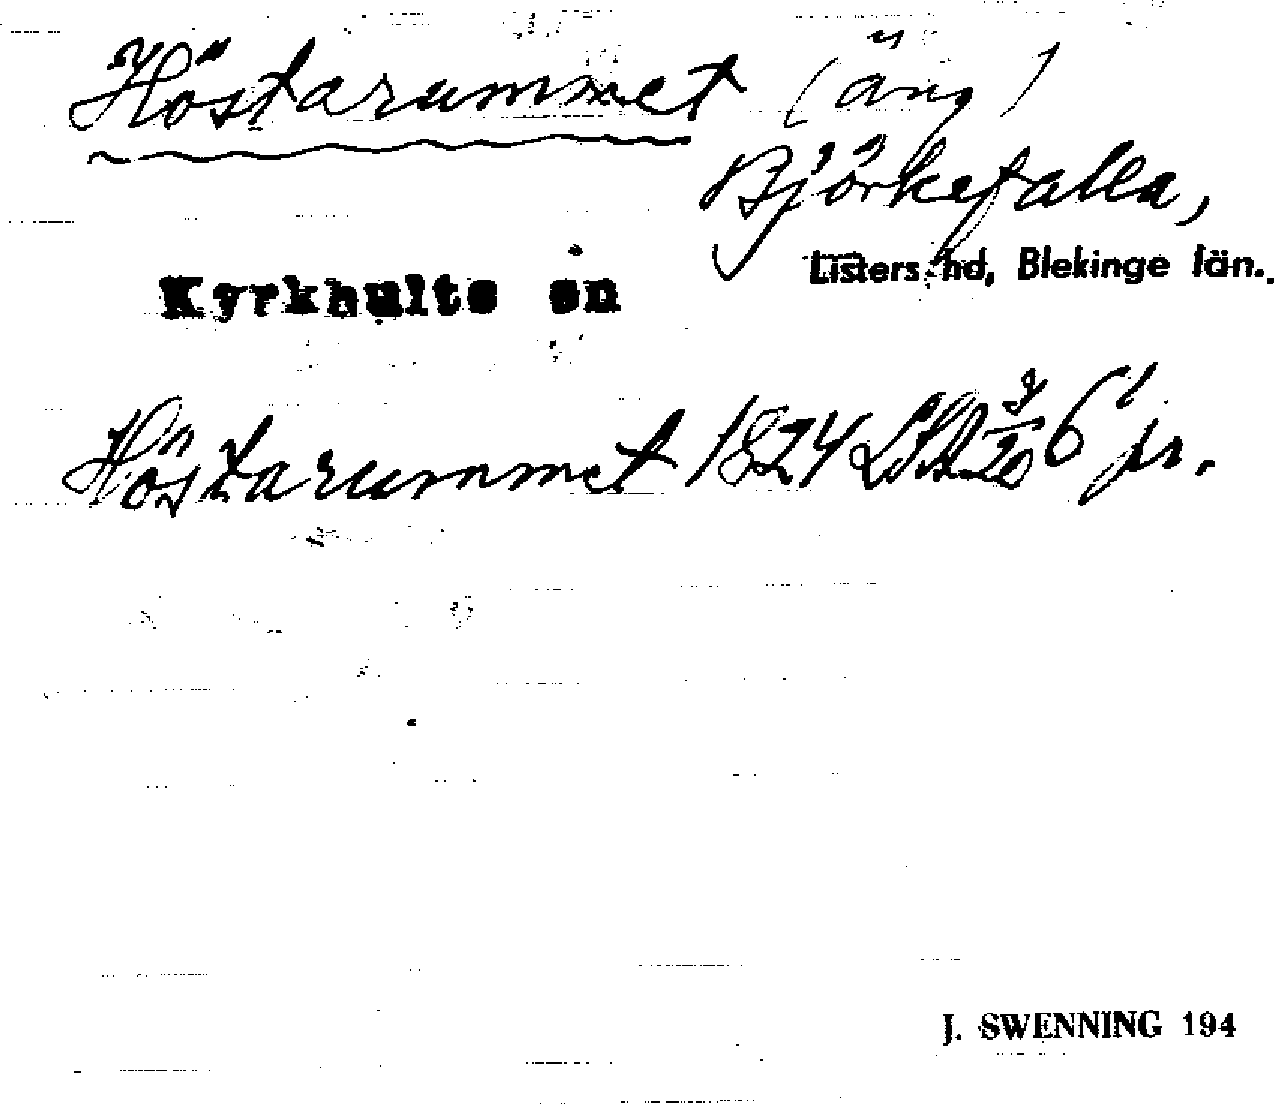 Höstarummet (äng)
Björkefalla,
Listers hd, Blekinge län.
Kyrkhults sn
Höstarummet 1824 LSA 9/20 6 pr.
J. SWENNING 194